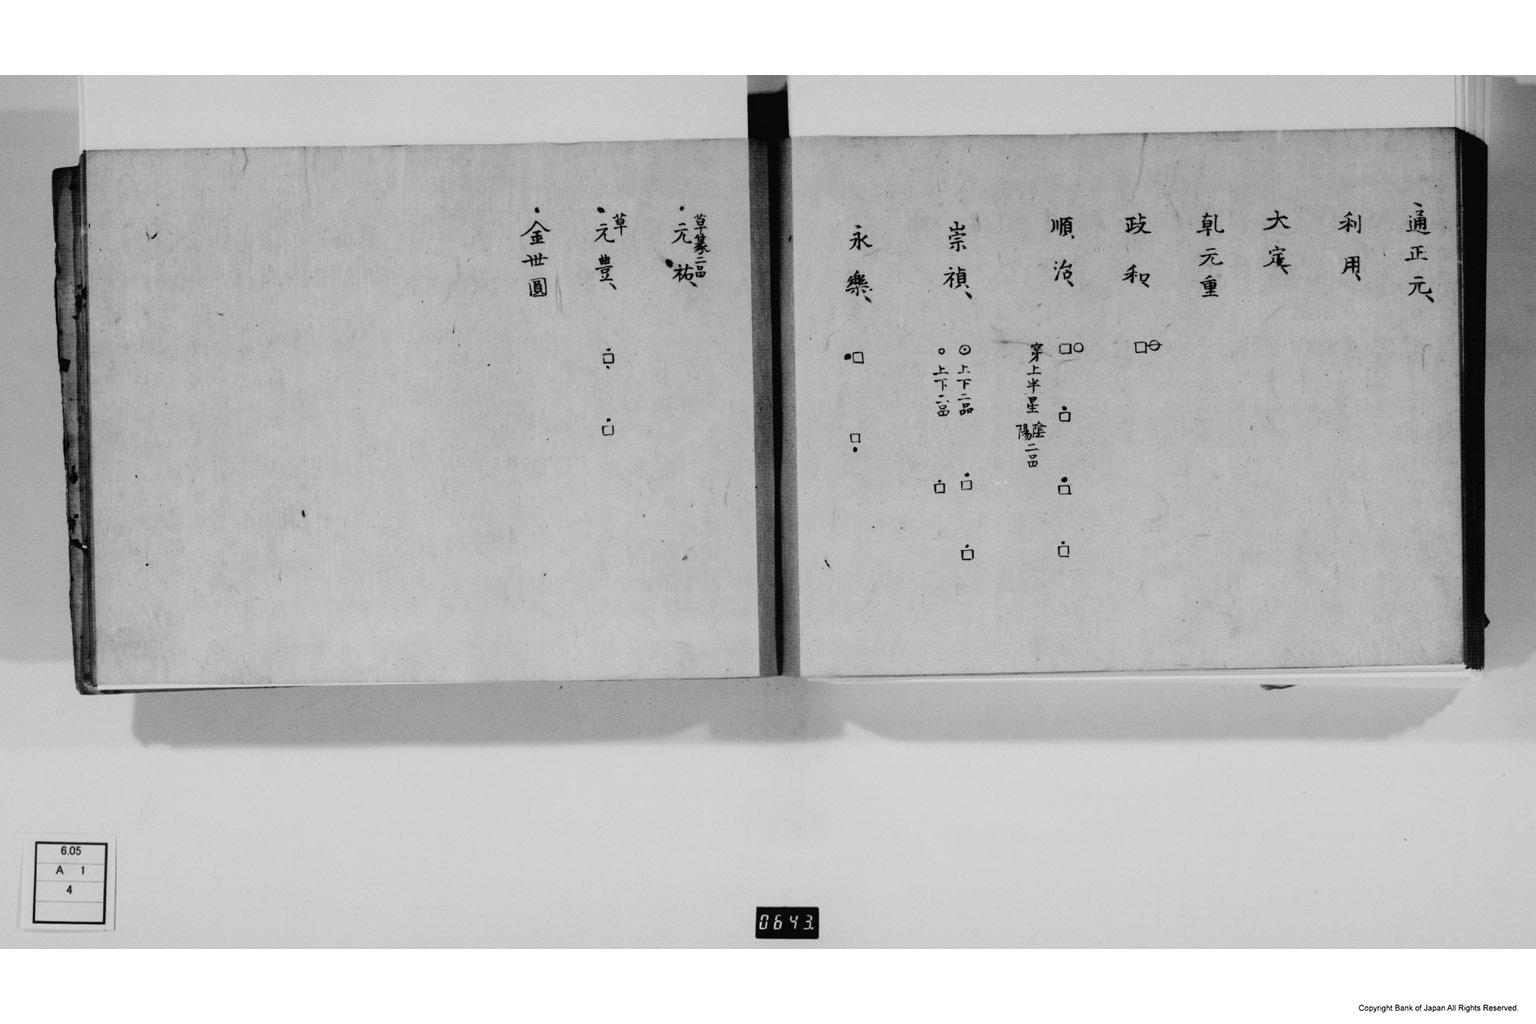 通正元
利用
大定
乹元重
政和
順治
穿上半星陰陽二品
崇禎
上下二品
上下二品
永樂
草篆二品
元祐
草
元豊
金世圓
6.05
A 1
4
0643
Copyright Bank of Japan All Rights Reserved.